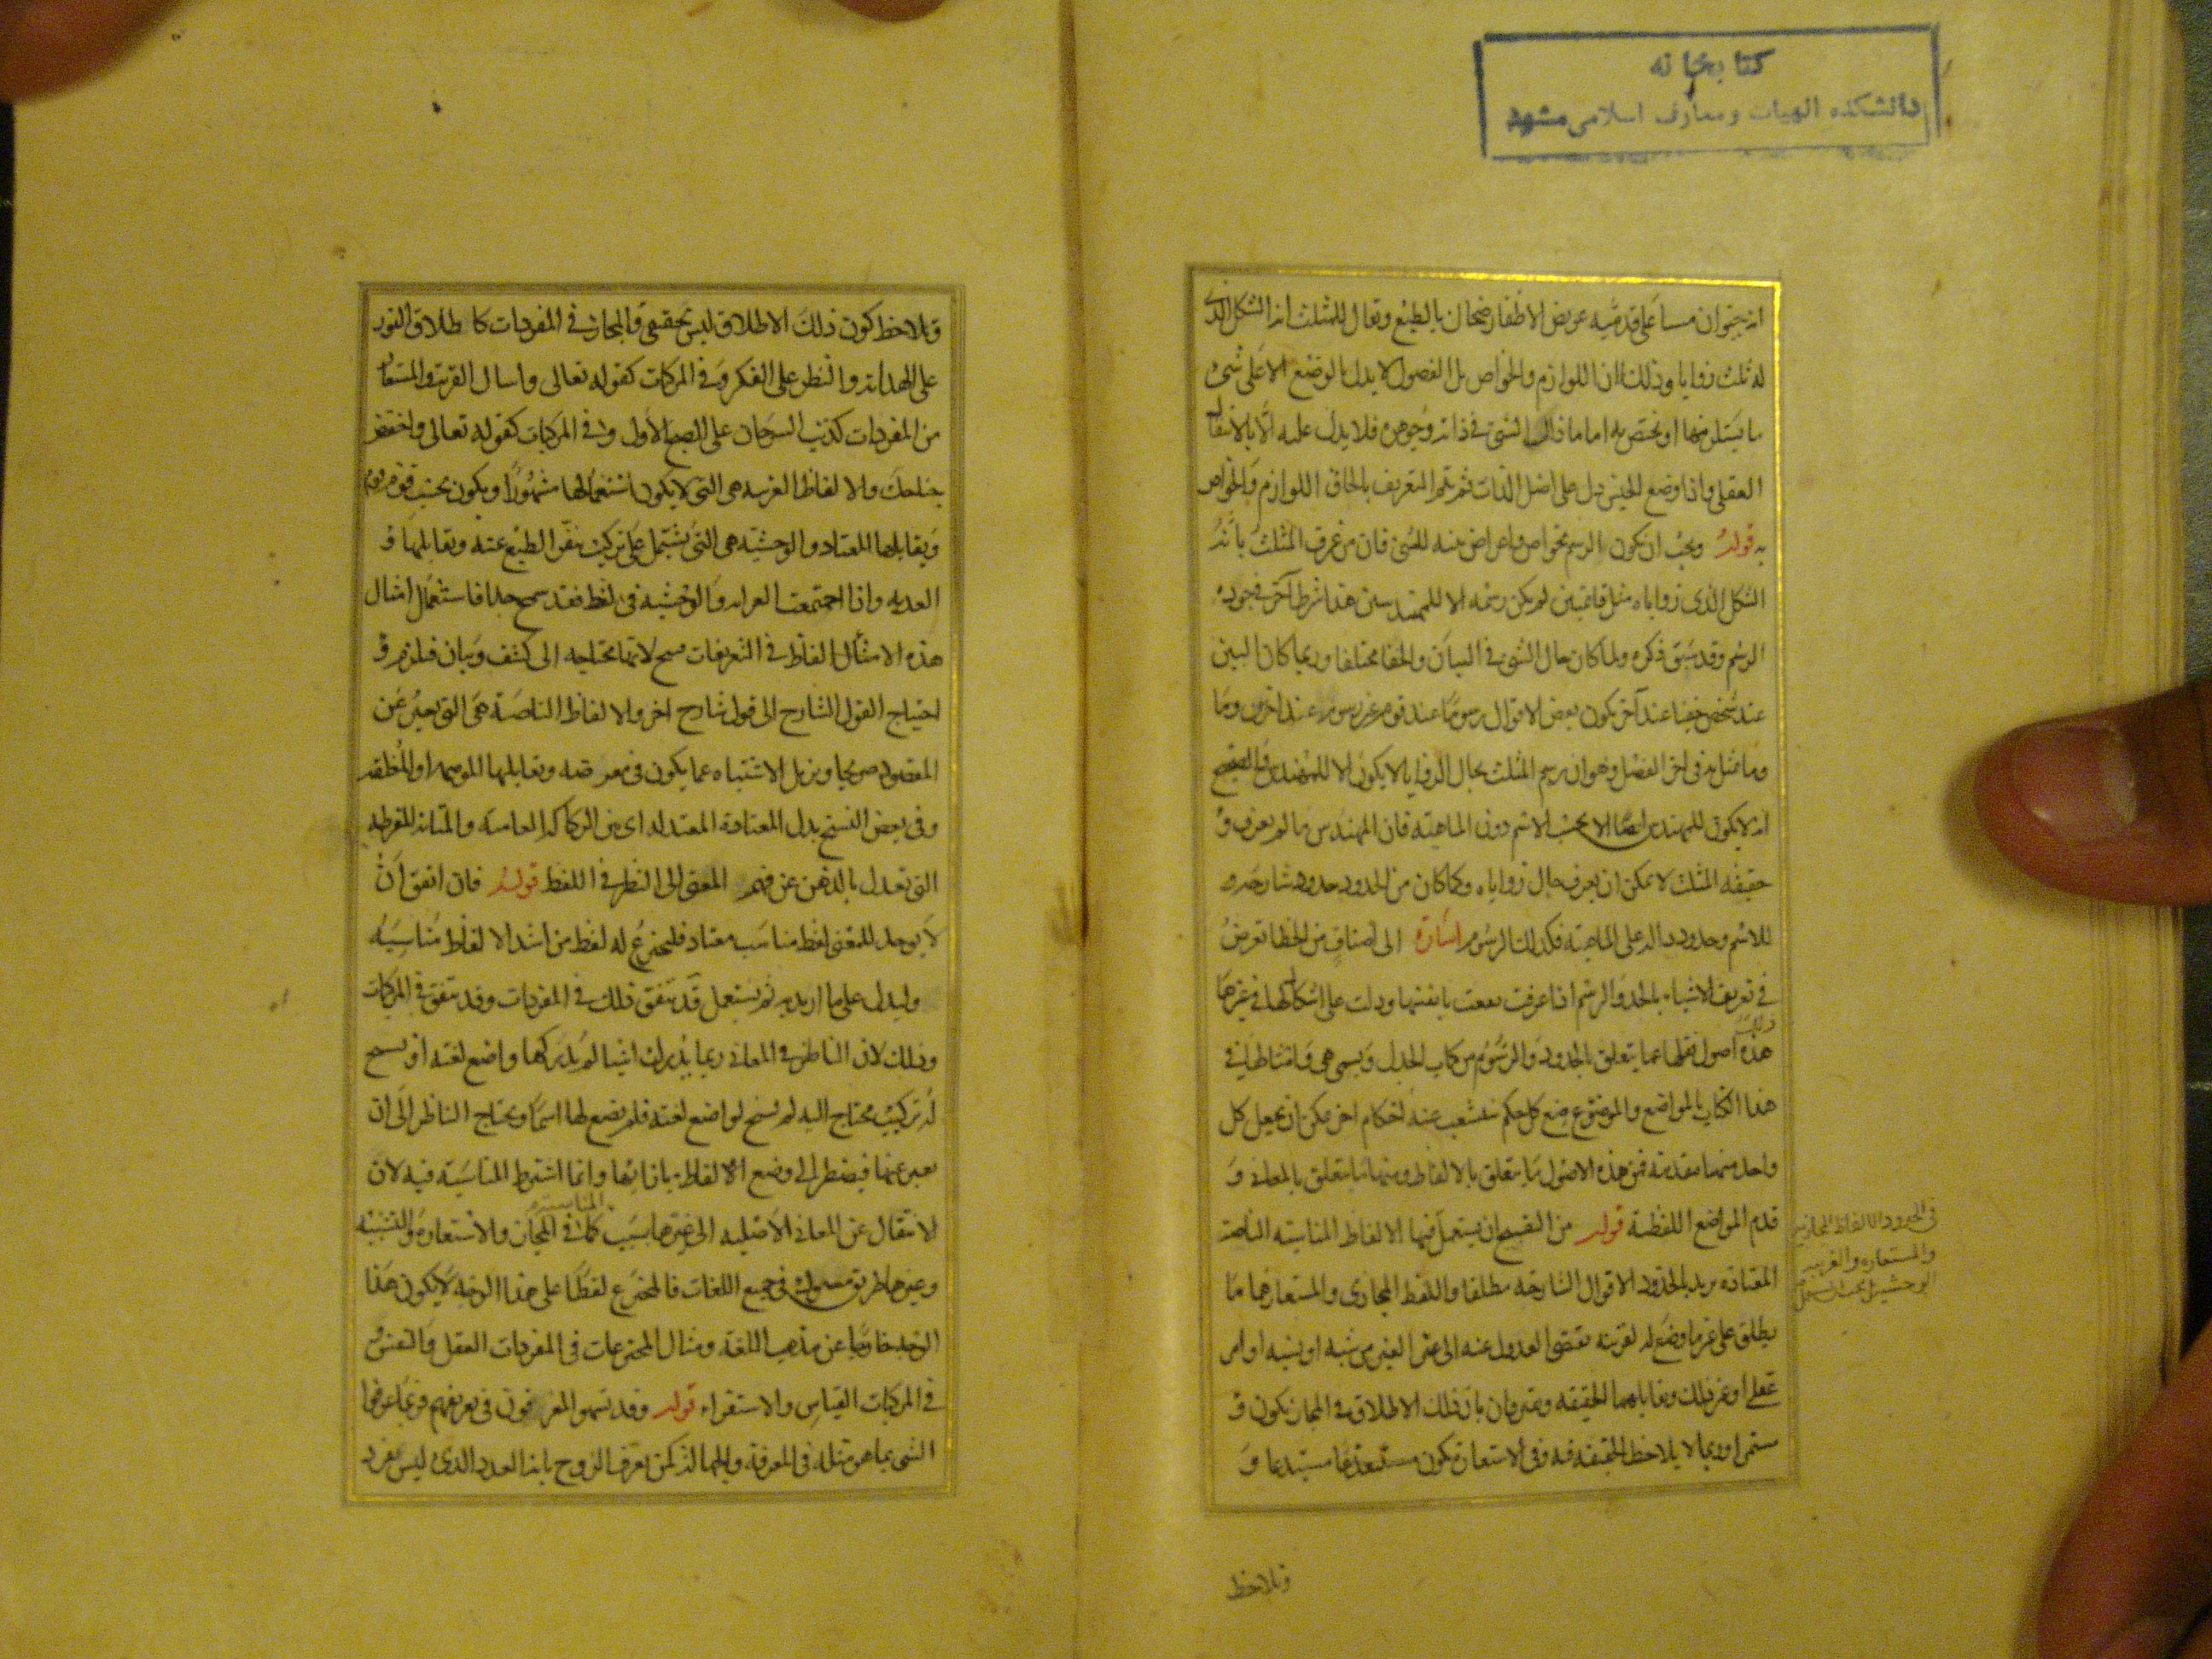 كتابخانه
دانشكده الهیات ومعارف اسلامی مشهد
انه حیوان مشاء علی قدمیه عریض الاظفار ضحاك بالطبع ویقال للمثلث انه الشكل الذی
له ثلث زوایا وذلك لان اللوازم والخواص بل الفصول لا یدل بالوضع الا علی شئ
ما یستلزمها او یختص به اما ما ذلك الشئ فی ذاته وجوهره فلا یدل علیه الا بالانتقال
العقلی واذا وضع الجنس دل علی اصل الذات ثم یتم التعریف بالحاق اللوازم والخواص
به قوله ویجب ان یكون الرسم بخواص واعراض بینه للشئ فان من عرف المثلث بانه
الشكل الذی زوایاه مثل قائمتین لم یكن رسمه الا للمهندسین هذا شرط آخر فی جوده
الرسم وقد سبق ذكره ولما كان حال الشئ فی البیان والخفا مختلفا وربما كان البین
عند شخص خفیا عند آخر یكون بعض الاقوال رسوما عند قوم غیر رسوم عند اخرین وما
وما مثل به فی اخر الفصل وهو ان رسم المثلث بحال الزوایا لا یكون الا للمهندس فالصحیح
انه لا یكون للمهندس ایضا الا بحسب الاسم دون الماهیته فان المهندس ما لم یعرف و
حقیقه المثلث لا یمكن ان یعرف حال زوایاه وكما كان من الحدود حدود شارحه
للاسم وحدود داله علی الماهیته فكذلك الرسوم اشارة الی اصناف من الخطا تعرض
فی تعریف الاشیاء بالحد والرسم اذا عرفت نفعت بانفسها ودلت علی اشكالها فی غیرها
ذلك
هذه اصول نقلها مما یتعلق بالحدود والرسوم من كتاب الجدل ویسمی هی وامثالها فی
هذا الكتاب بالمواضع والموضوع وضع كل حكم یتشعب عنه احكام اخر یمكن ان یجعل كل
واحد منها مقدمة فمن هذه الاصول ما یتعلق بالالفاظ ومنها ما یتعلق بالمعانی و
قدم المواضع اللفظیة قوله من القبیح ان یستعمل فیها الالفاظ المناسبه الناصة
المعتاده یرید بالحدود الاقوال الشارحه مطلقا واللفظ المجازی والمستعار هما ما
یطلق علی غیر ما وضع له لقرینه تقتضی العدول عنه الی هذا الغیر من شبه او نسبه او امر
عقلی او غیر ذلك ویقابلهما الحقیقه ویفترقان بان ذلك الاطلاق فی المجاز یكون و
مستمرا وربما لا یلاحظ الحقیقه فیه وفی الاستعارة یكون مستبعدا مبتدعا و
فی الحدود الالفاظ المجازیه
والمستعاره والغریبه
وتلاحظ
وتلاحظ كون ذلك الاطلاق لیس بحقیقی والمجاز فی المفردات كاطلاق النور
علی الهدایه والنظر علی الفكر وفی المركبات كقوله تعالی واسال القریة والمستعار
من المفردات كذنب السرحان علی الصبح الاول وفی المركبات كقوله تعالی واخفض
جناحك والالفاظ الغریبه هی التی لا یكون استعمالها مشهورا ویكون بحسب قوم دون
ویقابلها المعتاد والوحشیه هی التی یشتمل علی تركیب ینفر الطبع عنه ویقابلها و
العذبه واذا اجتمعت الغرابه والوحشیه فی لفظ فقد سمج جدا فاستعمال امثال
هذه الامثال الفاظ فی التعریفات قبیح لانها محتاجه الی كشف وبیان فیلزم و
احتیاج القول الشارح الی قول شارح اخر والالفاظ الناصة هی التی یعبر عن
المقصود صریحا ویزیل الاشتباه عما یكون فی معرضه ویقابلها الموهمه او المغلقه
وفی بعض النسخ بدل المعتادة المعتدله ای بین الركاكه العامیه والمتانه المفرطه
التی تعدل بالذهن عن فهم المعنی الی النظر فی اللفظ قوله فان اتفق ان
لا یوجد للمعنی لفظ مناسب معتاد فلیخترع له لفظ من اشد الالفاظ مناسبة
ولیدل علی ما ارید به ثم یستعمل قد یتفق ذلك فی المفردات وقد یتفق فی المركبات
وذلك لان الناظر فی المعانی ربما یدرك اشیا لم یدركها واضع لغته او یسنح
له تركیب محتاج الیه لم یسنح لواضع لغته فلم یضع لها اسما ویحتاج الناظر الی ان
یعبر عنها فیضطر الی وضع الالفاظ بازائها وانما اشترط المناسبة فیه لان
المناسبه
الانتقال عن المعانی الاصلیه الی غیرها بسبب كما فی المجاز والاستعارة والتشبیه
وغیرها طریق مسلوك فی جمیع اللغات فالمخترع لفظا علی هذا الوجه لا یكون هذا
الوجه خارجا عن مذهب اللغة ومثال المخترعات فی المفردات العقل والنفس و
فی المركبات القیاس والاستقراء قوله وقد یسهو المعرفون فی تعریفهم فربما عرفوا
الشی بما هو مثله فی المعرفة والجهالة كمن یعرف الزوج بانه العدد الذی لیس بفرد